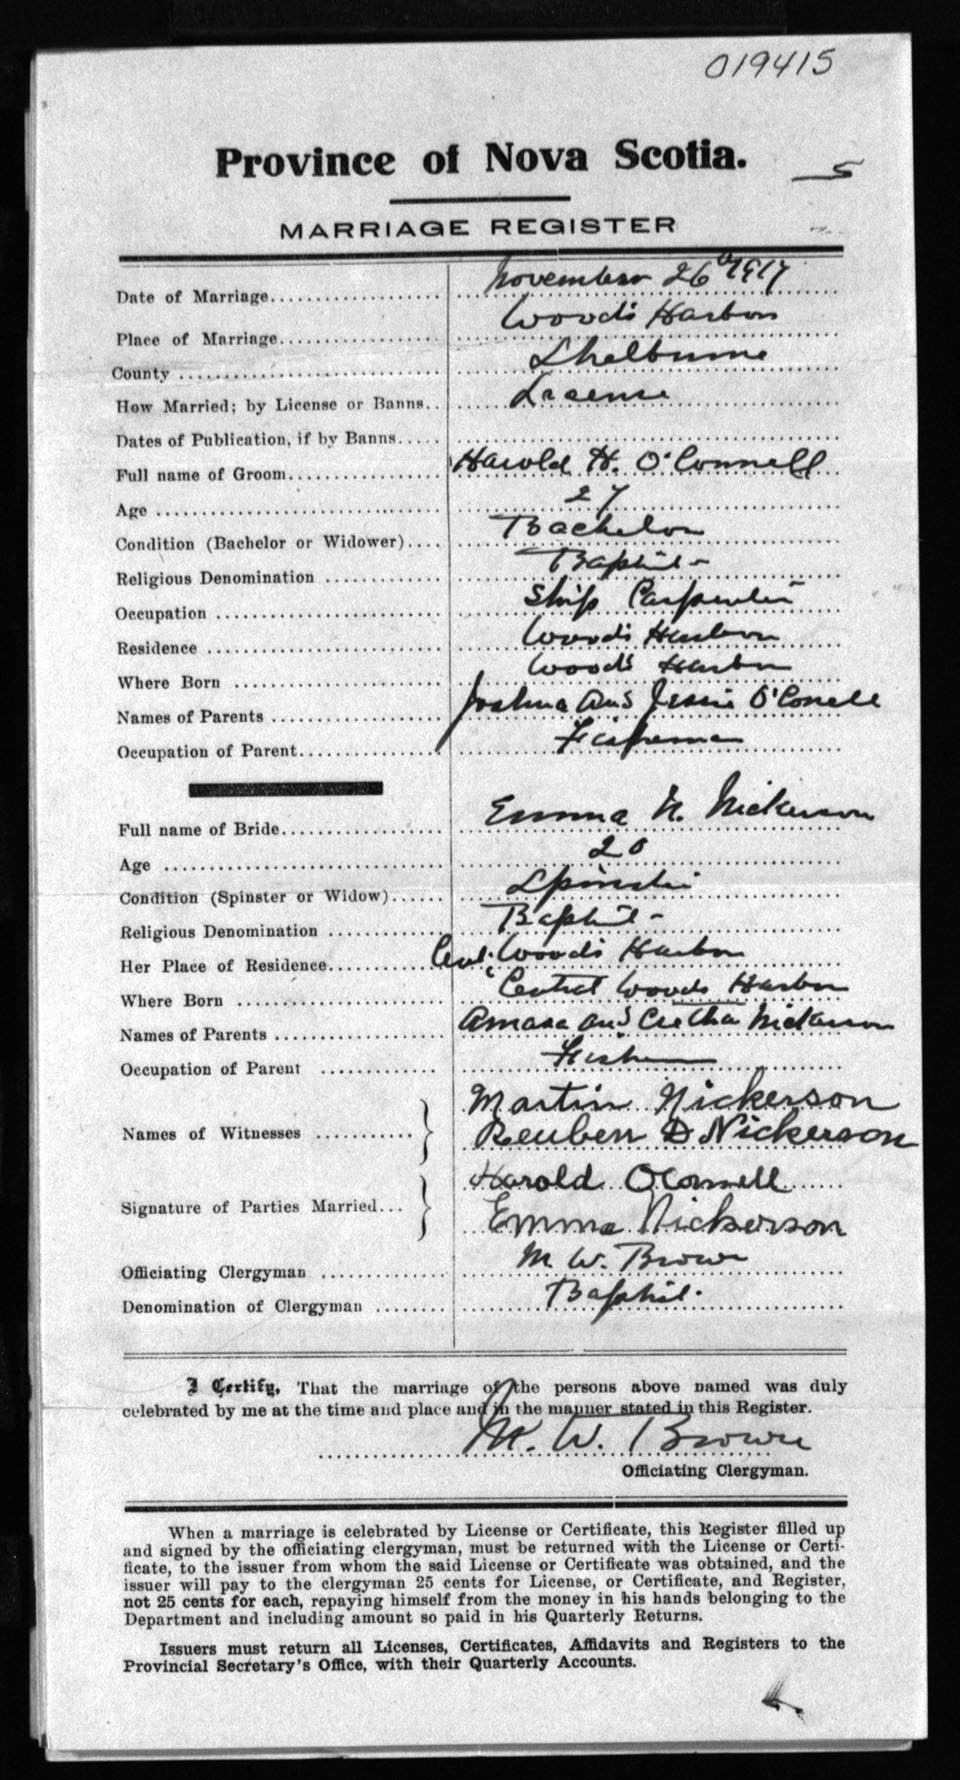 019415
Province of Nova Scotia.
5
MARRIAGE REGISTER
Date of Marriage November 26th 1917
Place of Marriage Woods Harbor
County Shelburne
How Married; by License or Banns License
Dates of Publication, if by Banns
Full name of Groom Harold H. O'Connell
Age 27
Condition (Bachelor or Widower) Bachelor
Religious Denomination Baptist
Occupation Ship Carpenter
Residence Woods Harbor
Where Born Woods Harbor
Names of Parents Joshua and Jessie O'Conell
Occupation of Parent Fisherman
Full name of Bride Emma N. Nickerson
Age 20
Condition (Spinster or Widow) Spinster
Religious Denomination Baptist
Her Place of Residence Cent. Woods Harbor
Where Born Central Woods Harbor
Names of Parents Amasa and Nickerson
Occupation of Parent
Names of Witnesses Martin Nickerson
Reuben D Nickerson
Signature of Parties Married Harold OConnell
Emma Nickerson
Officiating Clergyman M. W. Brown
Denomination of Clergyman Baptist.
I Certify, That the marriage of the persons above named was duly
celebrated by me at the time and place and in the manner stated in this Register.
M. W. Brown
Officiating Clergyman.
When a marriage is celebrated by License or Certificate, this Register filled up
and signed by the officiating clergyman, must be returned with the License or Certi-
ficate, to the issuer from whom the said License or Certificate was obtained, and the
issuer will pay to the clergyman 25 cents for License, or Certificate, and Register,
not 25 cents for each, repaying himself from the money in his hands belonging to the
Department and including amount so paid in his Quarterly Returns.
Issuers must return all Licenses, Certificates, Affidavits and Registers to the
Provincial Secretary's Office, with their Quarterly Accounts.